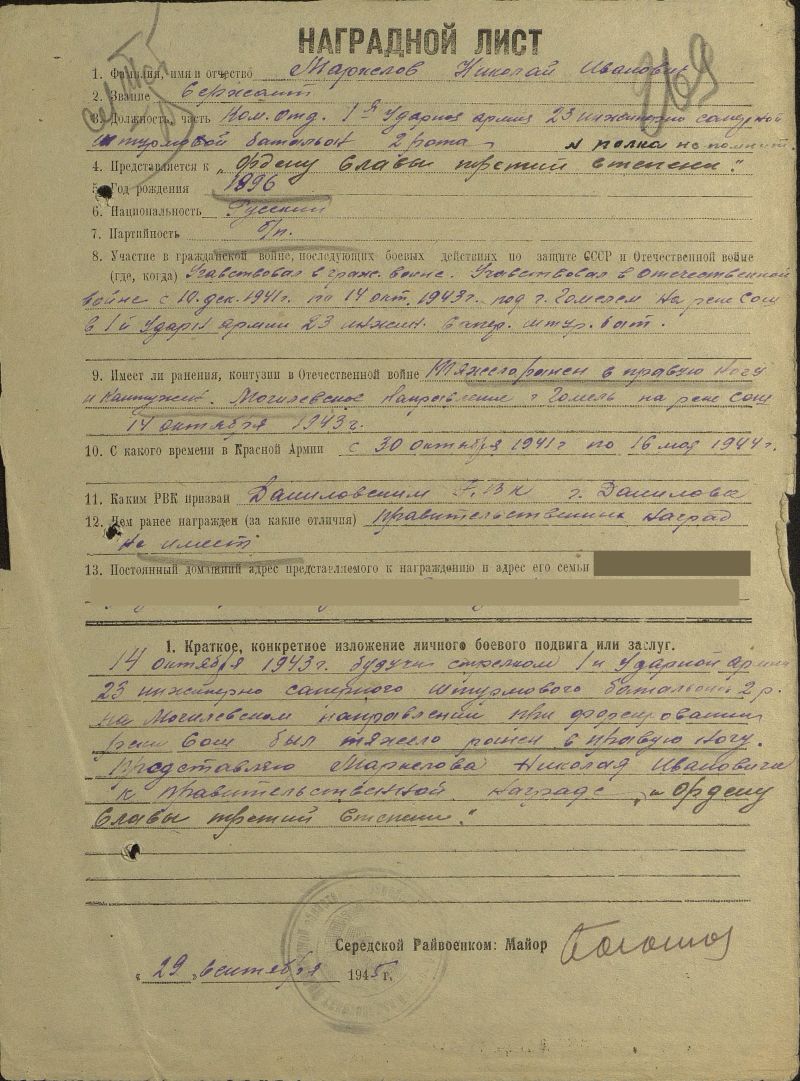 НАГРАДНОЙ ЛИСТ
269
1. Фамилия, имя и отчество Маркелов Николай Иванович
2. Звание Сержант
3. Должность, часть Ком. отд. 1й Ударная армия 23 инженерно саперной
штурмовой батальон 2 рота, № полка не помнит.
4. Представляется к „Ордену Славы третий степени".
5. Год рождения 1896
6. Национальность Русский
7. Партийность б/п.
8. Участие в гражданской войне, последующих боевых действиях по защите СССР и Отечественной войне
(где, когда) Учавствовал в граж. войне. Учавствовал в Отечественной
войне с 10. дек. 1941г. по 14 окт. 1943г. под г. Гомелем на реке Сош
в 1й Ударн армии 23 инжен. сапер. штур. бат.
9. Имеет ли ранения, контузии в Отечественной войне Тяжело ранен в правую ногу
и контужен. Могилевское направление г. Гомель на реке Сош
14 октября 1943г.
10. С какого времени в Красной Армии с 30 октября 1941г по 16 мая 1944г.
11. Каким РВК призван Даниловским Р.В.К г. Даниловск
12. Чем ранее награжден (за какие отличия) правительственных наград
не имеет
13. Постоянный домашний адрес представляемого к награждению и адрес его семьи
1. Краткое, конкретное изложение личного боевого подвига или заслуг.
14 октября 1943г. будучи стрелком 1й Ударной арми
23 инженерно саперного штурмового батальона 2 р.
на Могилевском направлении при форсировании
реки Сош был тяжело ранен в правую ногу.
Представляю Маркелова Николая Ивановича
к правительственной награде „Ордену
Славы третий степени".
Середской Райвоенком: Майор
„29" сентября 1945г.